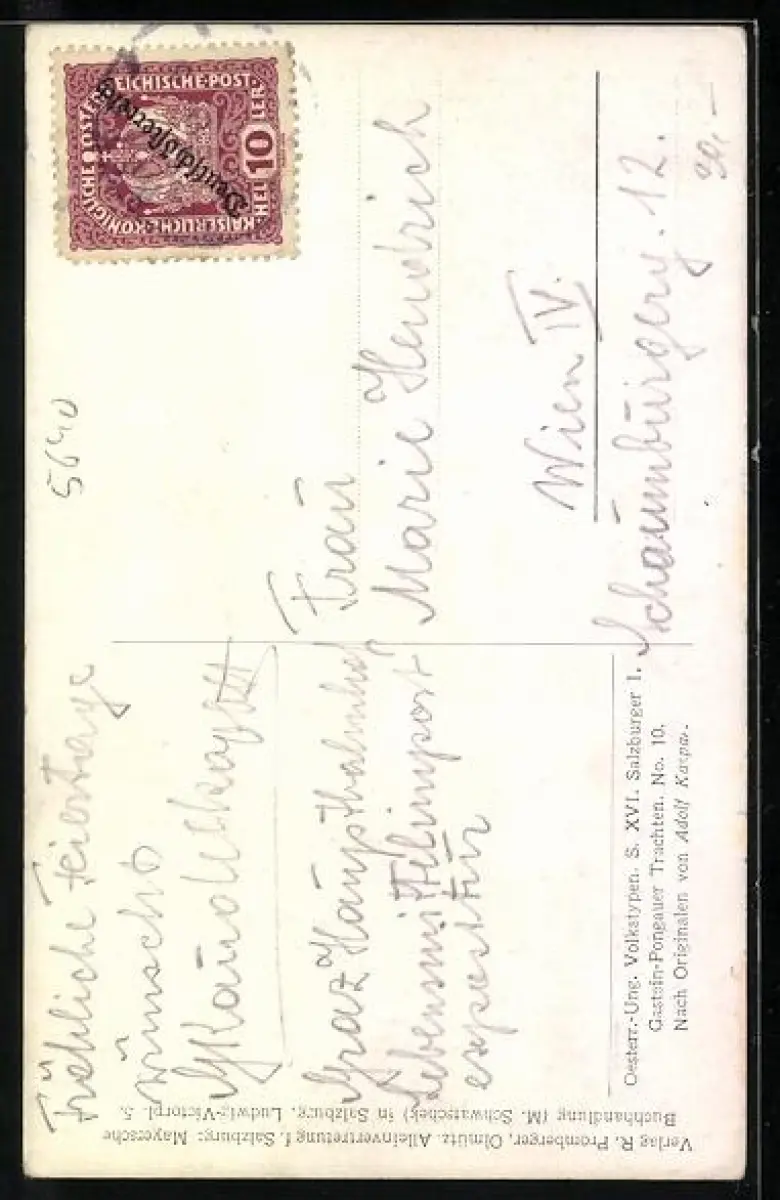 Fröhliche Feiertage
wünscht
Graz Hauptbahnhof
Lebensmittelimport
expositur
Frau
Marie Hendrich
Wien IV.
Schaumburgerg. 12.
5640
30,-
KAISERLICHE KÖNIGLICHE ÖSTERREICHISCHE POST
10
HELLER
Deutschösterreich
Oesterr.-Ung. Volkstypen. S. XVI. Salzburger I.
Gastein-Pongauer Trachten. No. 10.
Nach Originalen von Adolf Kaspar.
Verlag R. Promberger, Olmütz. Alleinvertretung f. Salzburg: Mayersche
Buchhandlung (M. Schwatschek) in Salzburg, Ludwig-Victorpl. 5.